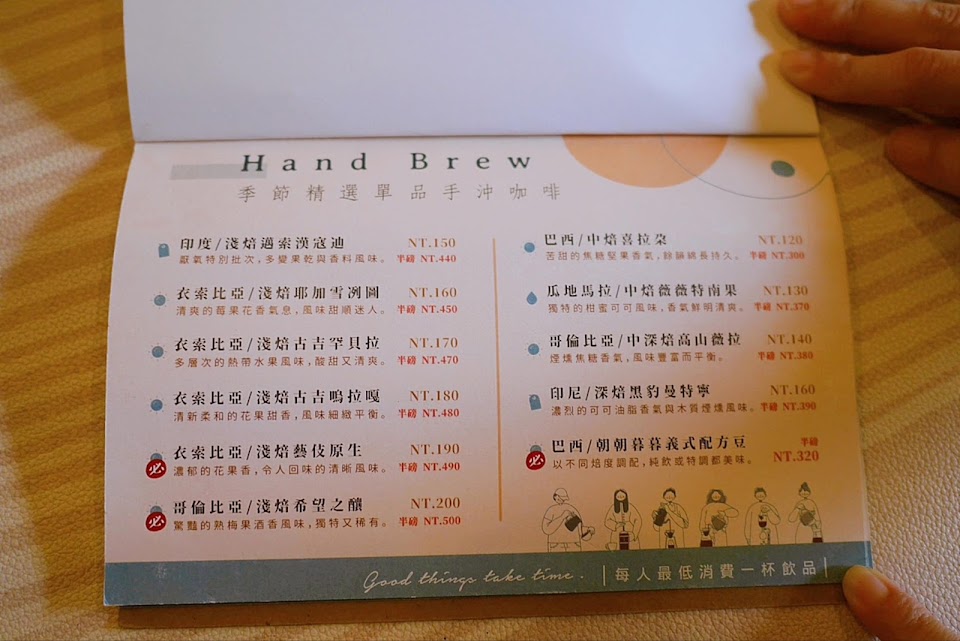 Hand Brew
季節精選單品手沖咖啡
印度/淺焙邁索漢寇迪 NT.150
厭氧特別批次,多變果乾與香料風味。 半磅 NT.440
衣索比亞/淺焙耶加雪冽圖 NT.160
清爽的莓果花香氣息,風味甜順迷人。 半磅 NT.450
衣索比亞/淺焙古吉罕貝拉 NT.170
多層次的熱帶水果風味,酸甜又清爽。 半磅 NT.470
衣索比亞/淺焙古吉嗚拉嘎 NT.180
清新柔和的花果甜香,風味細緻平衡。 半磅 NT.480
衣索比亞/淺焙藝伎原生 NT.190
必 濃郁的花果香,令人回味的清晰風味。 半磅 NT.490
哥倫比亞/淺焙希望之釀 NT.200
必 驚豔的熟梅果酒香風味,獨特又稀有。 半磅 NT.500
巴西/中焙喜拉朶 NT.120
苦甜的焦糖堅果香氣,餘韻綿長持久。 半磅 NT.300
瓜地馬拉/中焙薇薇特南果 NT.130
獨特的柑蜜可可風味,香氣鮮明清爽。 半磅 NT.370
哥倫比亞/中深焙高山薇拉 NT.140
煙燻焦糖香氣,風味豐富而平衡。 半磅 NT.380
印尼/深焙黑豹曼特寧 NT.160
濃烈的可可油脂香氣與木質煙燻風味。 半磅 NT.390
巴西/朝朝暮暮義式配方豆 半磅
必 以不同焙度調配,純飲或特調都美味。 NT.320
Good things take time. |每人最低消費一杯飲品|